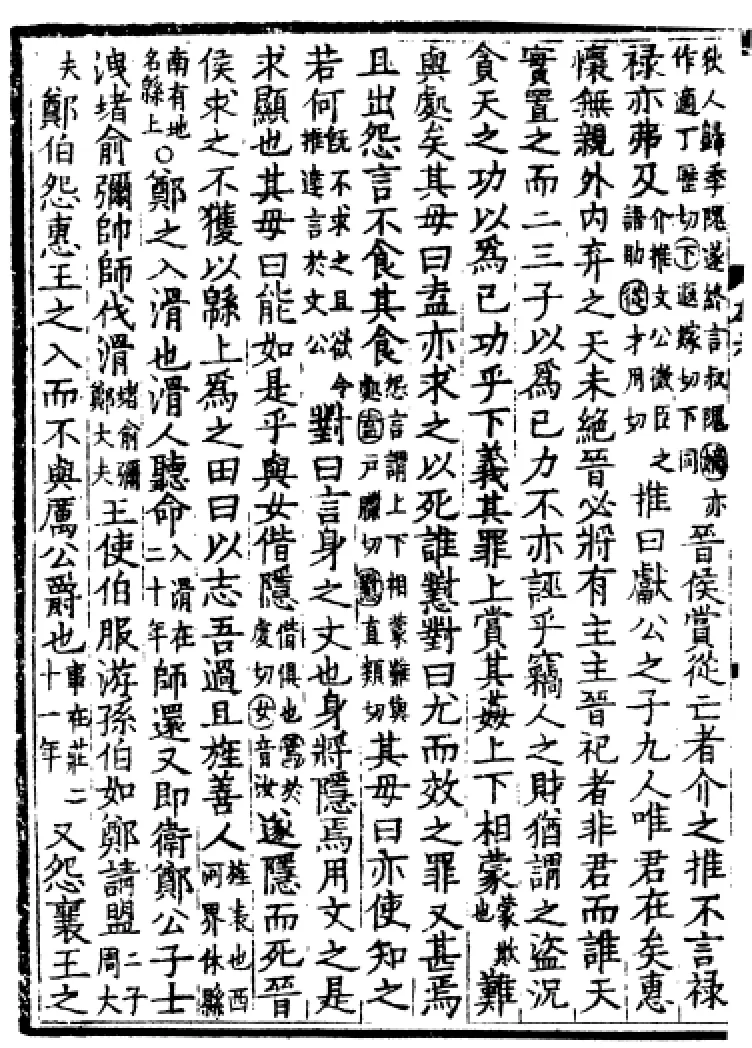 狄人歸季隗遂終言叔隗亦作適丁歷切下適嫁切下同晉侯賞從亡者介之推不言禄
禄亦弗及介推文公微臣之語助從才用切推曰獻公之子九人唯君在矣惠
懷無親外内弃之天未絶晉必將有主主晉祀者非君而誰天
實置之而二三子以爲己力不亦誣乎竊人之財猶謂之盜況
貪天之功以爲己功乎下義其罪上賞其姦上下相蒙蒙欺也難
與處矣其母曰盍亦求之以死誰懟對曰尤而效之罪又甚焉
且出怨言不食其食怨言謂上下相蒙難與處盍戸臘切懟直類切其母曰亦使知之
若何既不求之且欲令推達言於文公對曰言身之文也身將隱焉用文之是
求顯也其母曰能如是乎與女偕隱偕俱也焉於虔切女音汝遂隱而死晉
侯求之不獲以緜上爲之田曰以志吾過且旌善人旌表也西河界休縣
南有地名緜上○鄭之入滑也滑人聽命入滑在二十年師還又即衛鄭公子士
洩堵俞彌帥師伐滑堵俞彌鄭大夫王使伯服游孫伯如鄭請盟二子周大
夫鄭伯怨惠王之入而不與厲公爵也事在莊二十一年又怨襄王之